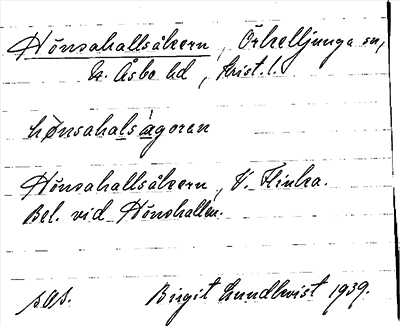 Hönsahallsåkern, Örkelljunga sn,
N. Åsbo hd, Krist. l.
hønsahalsågoran
Hönsahallsåkern, V. Flinka.
Bel. vid Hönshallen.
sAs. Birgit Lundkvist 1939.